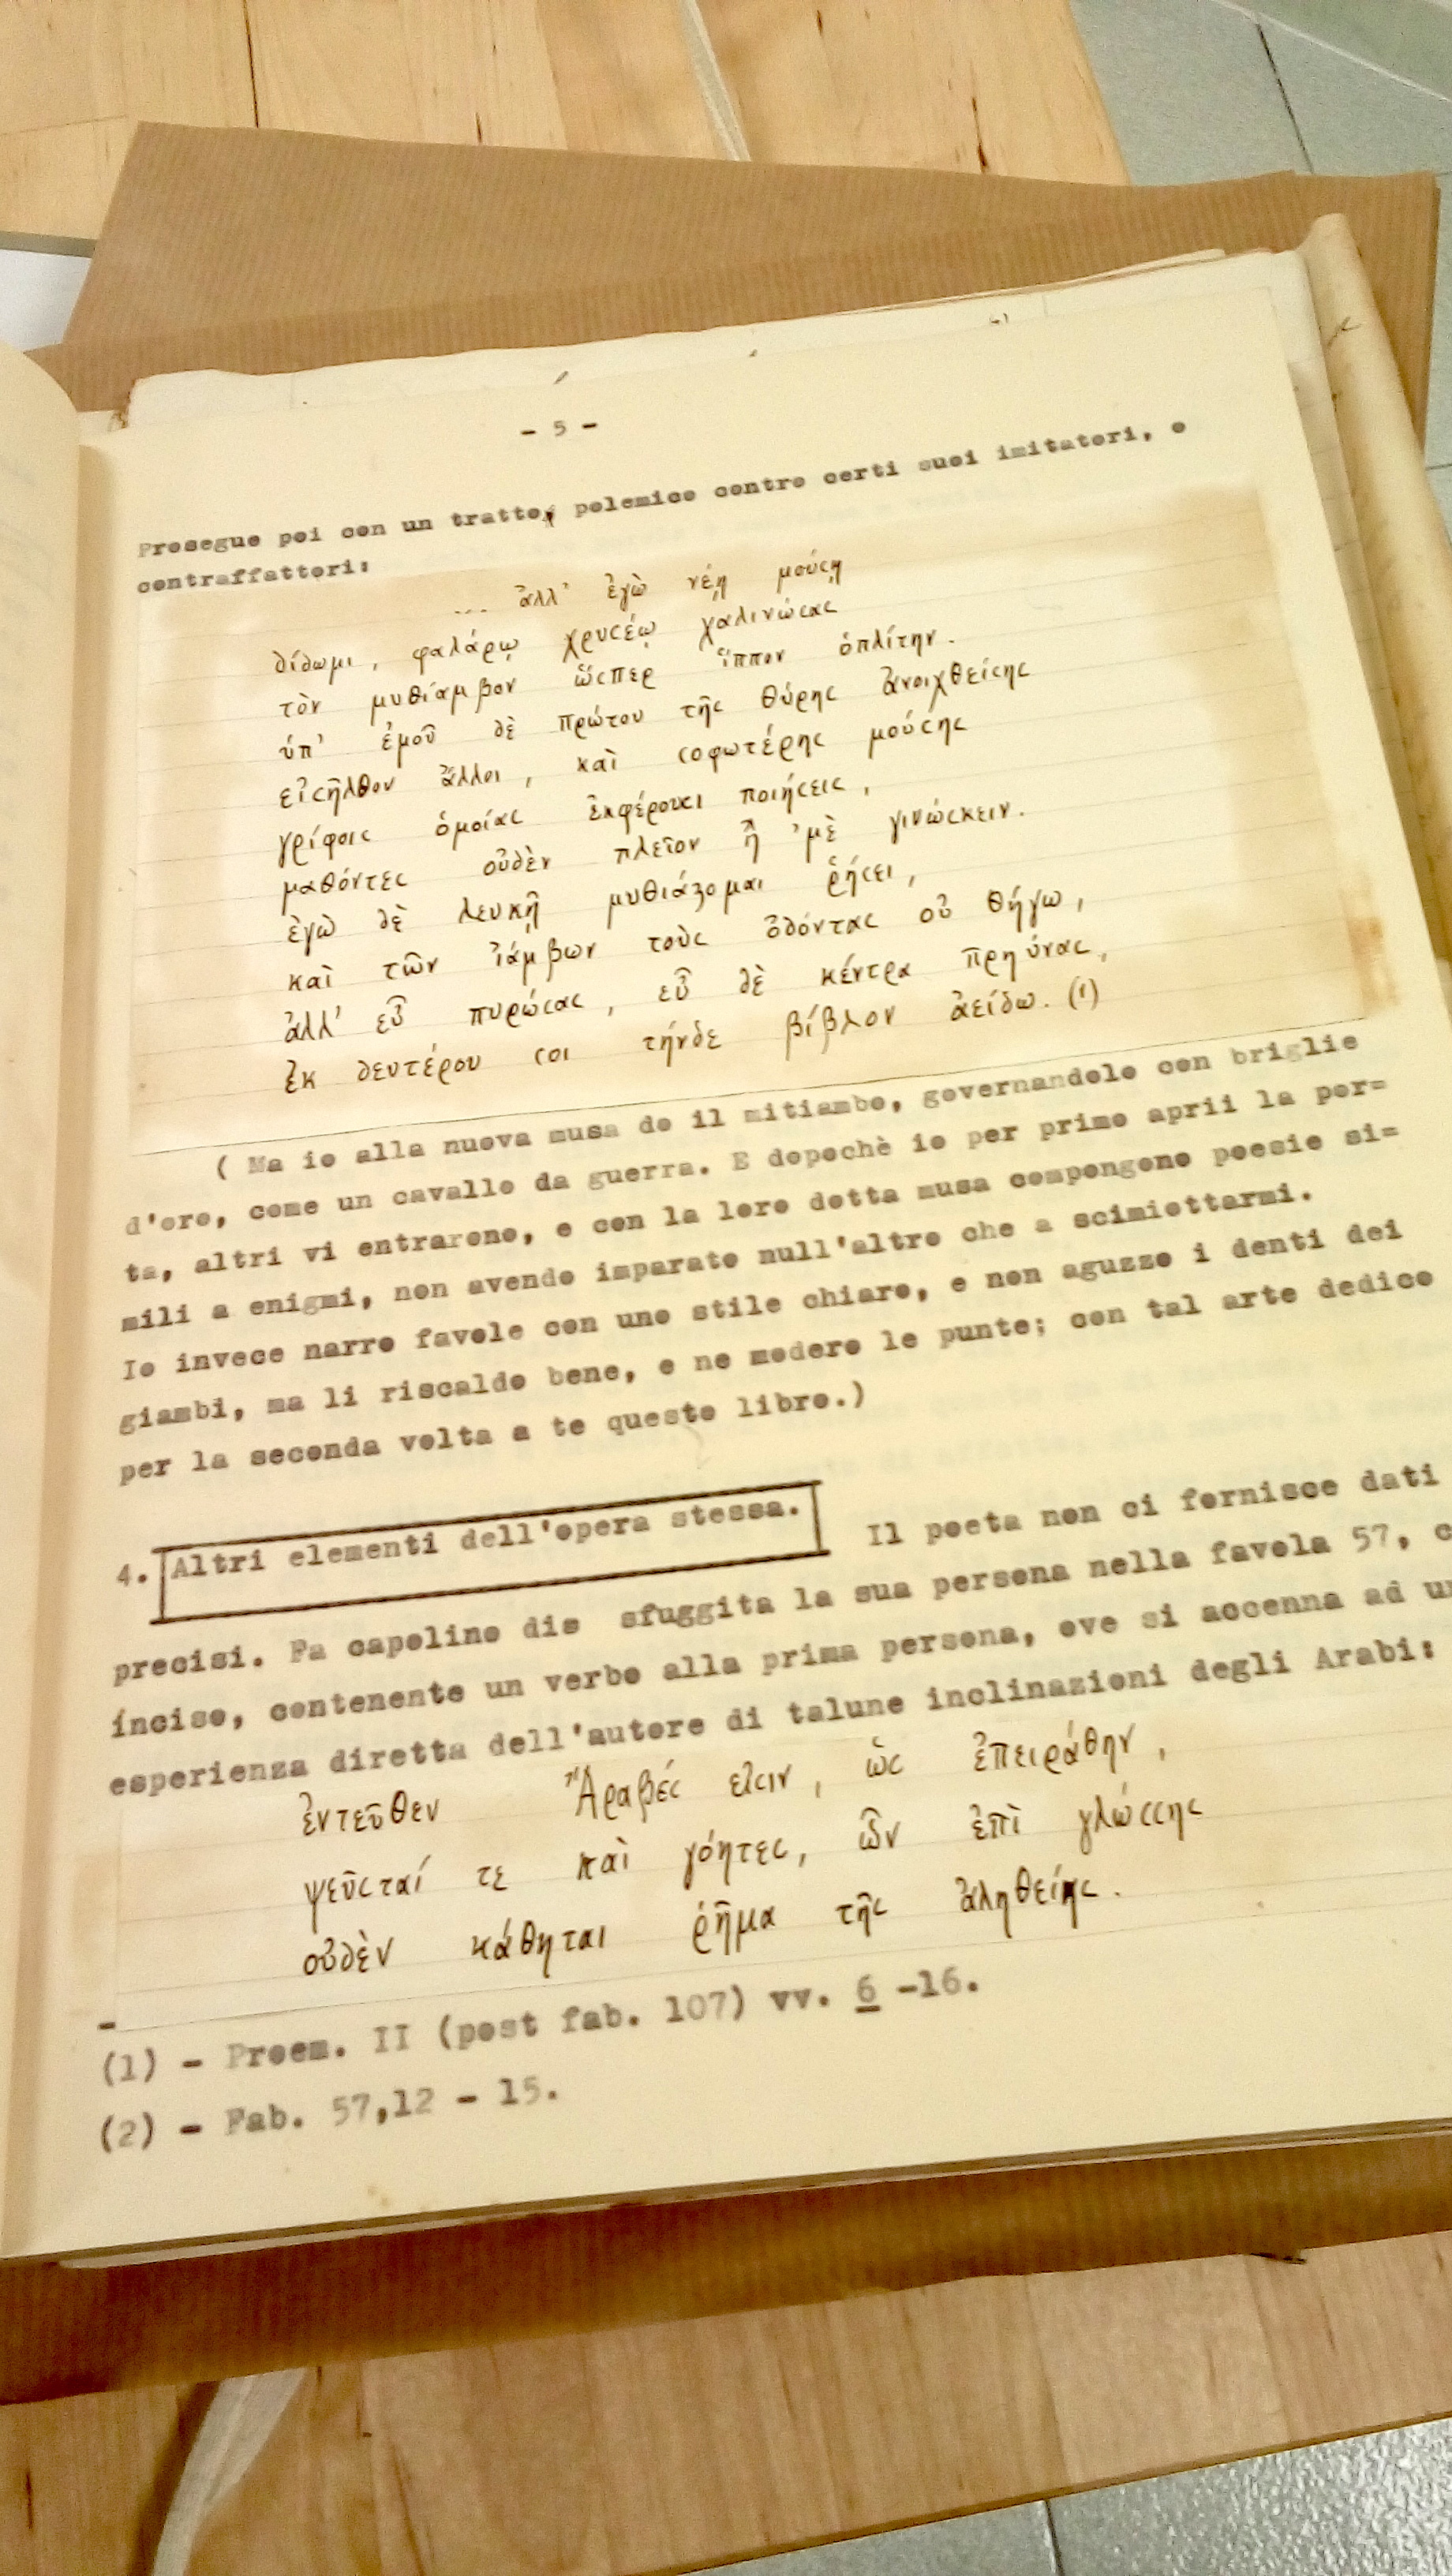 - 5 -
Prosegue poi con un tratto, polemico contro certi suoi imitatori, o
contraffattori:
... ἀλλ' ἐγὼ νέῃ μούσῃ
δίδωμι, φαλάρῳ χρυσέῳ χαλινώσας
τὸν μυθίαμβον ὥσπερ ἵππον ὁπλίτην.
ὑπ' ἐμοῦ δὲ πρώτου τῆς θύρης ἀνοιχθείσης
εἰσῆλθον ἄλλοι, καὶ σοφωτέρης μούσης
γρίφοις ὁμοίας ἐκφέρουσι ποιήσεις,
μαθόντες οὐδὲν πλεῖον ἢ 'μὲ γινώσκειν.
ἐγὼ δὲ λευκῇ μυθιάζομαι ῥήσει,
καὶ τῶν ἰάμβων τοὺς ὀδόντας οὐ θήγω,
ἀλλ' εὖ πυρώσας, εὖ δὲ κέντρα πρηύνας,
ἐκ δευτέρου σοι τήνδε βίβλον ἀείδω. (1)
( Ma io alla nuova musa do il mitiambo, governandolo con briglie
d'oro, come un cavallo da guerra. E dopochè io per primo aprii la por=
ta, altri vi entrarono, e con la loro dotta musa compongono poesie si=
mili a enigmi, non avendo imparato null'altro che a scimiottarmi.
Io invece narro favole con uno stile chiaro, e non aguzzo i denti dei
giambi, ma li riscaldo bene, e ne modero le punte; con tal arte dedico
per la seconda volta a te questo libro.)
4. Altri elementi dell'opera stessa. Il poeta non ci fornisce dati
precisi. Fa capolino dis sfuggita la sua persona nella favola 57,
inciso, contenente un verbo alla prima persona, ove si accenna ad
esperienza diretta dell'autore di talune inclinazioni degli Arabi:
ἐντεῦθεν Ἄραβές εἰσιν, ὡς ἐπειράθην,
ψεῦσταί τε καὶ γόητες, ὧν ἐπὶ γλώσσης
οὐδὲν κάθηται ῥῆμα τῆς ἀληθείης.
(1) - Proem. II (post fab. 107) vv. 6 -16.
(2) - Fab. 57,12 - 15.